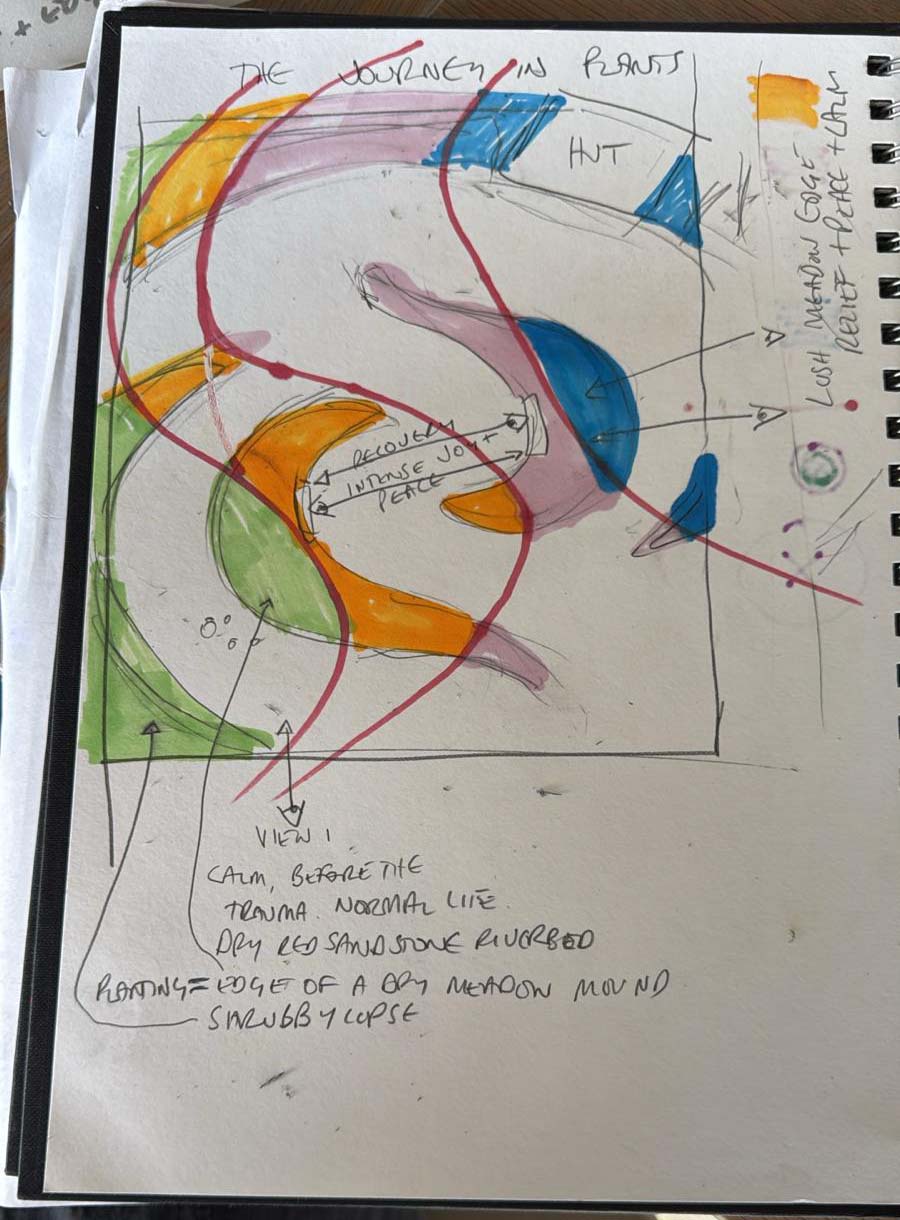 THE JOURNEY IN PLANTS
HUT
LUSH MEADOW EDGE
RELIEF + PEACE + CALM
RECOVERY
INTENSE JOY +
PEACE
VIEW 1
CALM, BEFORE THE
TRAUMA. NORMAL LIFE.
DRY RED SANDSTONE RIVERBED
PLANTING = EDGE OF A DRY MEADOW MOUND
SHRUBBY COPSE